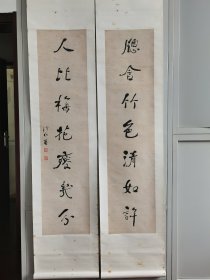 聽含竹色清如許
人比梅花瘦幾分